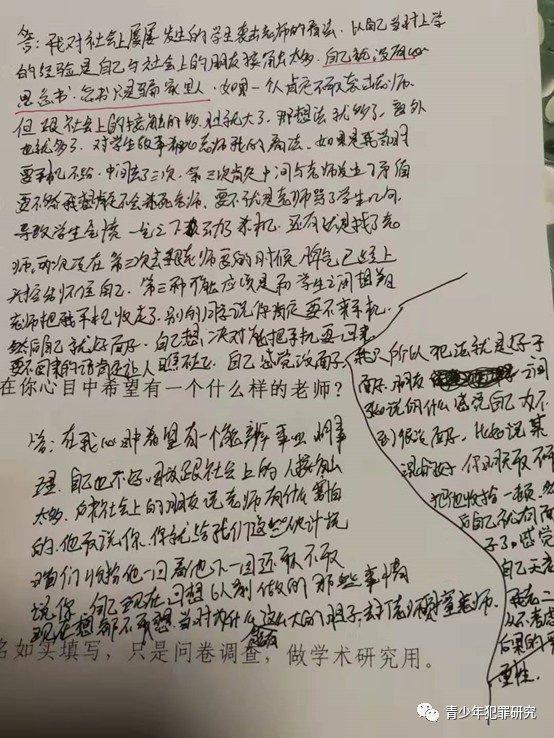 答：我对社会上屡屡发生的学生袭击老师的看法，以自己当时上学
的经验是自己与社会上的朋友接触太多，自己就没有心
思念书，念书只是骗家里人，如果一个人肯定不敢袭击老师，
但跟社会上的接触的多，胆就大了，那想法就多了，意外
也就多了，对学生故事 老师我的看法，如果是我前用
要手机不给，中间去了三次，第三次肯定中间与老师发生了矛盾
要不然我想肯定不会杀死老师，要不就是老师骂了学生几句，
导致学生气愤 下 了杀机，还有就是找了老
师两次没在第三次去跟老师要的时候脾气已经上
头控制不住自己，第三种可能应该是和学生之间相
老师把我手机收走了，别的同学说你肯定要不来手机，
然后自己就好面子，自己想一次对 能把手机要回来
要不回来的话肯定让人瞧不起，自己感觉没面子，我之所以犯法就是好于
面子，朋友 之间
说的什么感觉自己办不
到很没面子，比如说某
混的好你敢不敢
把他收拾一顿，然
后自己就有面
子了，感觉
自己天老
我老二
从不考虑
后果的严
重性。
在你心目中希望有一个什么样的老师？
答：在我心中希望有一个能辨事 明事
理，自己也不好 跟社会上的人接触
太多，后来社会上的朋友说老师有什么害怕
的，他敢说你，你就给我们这些伙计说
咱们收拾他一回看他下一回还敢不敢
说你，自己现在回想以前做的那些事情
现在想都不敢想当时为什么这么大的胆子去 老师。
名如实填写，只是问卷调查，做学术研究用。
青少年犯罪研究